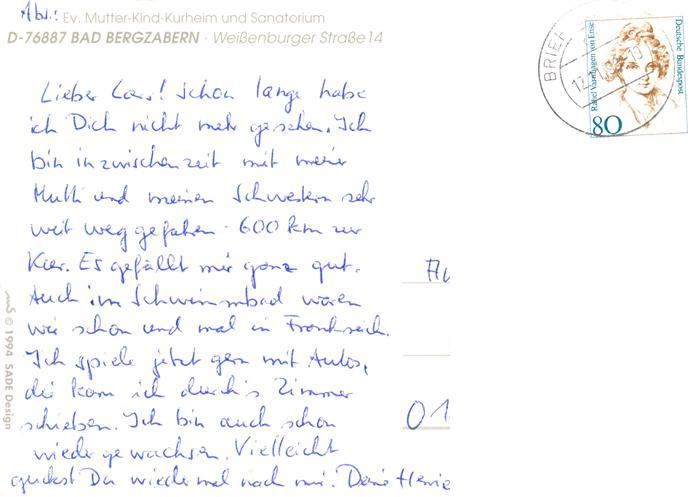 Abs.: Ev. Mutter-Kind-Kurheim und Sanatorium
D-76887 BAD BERGZABERN · Weißenburger Straße 14
Lieber Lars! Schon lange habe
ich Dich nicht mehr gesehen. Ich
bin inzwischenzeit mit meiner
Mutti und meinen Schwestern sehr
weit weggefahren. 600 km zur
Kur. Es gefällt mir ganz gut.
Auch im Schwimmbad waren
wir schon und mal in Frankreich.
Ich spiele jetzt gern mit Autos,
die kann ich durch's Zimmer
schieben. Ich bin auch schon
wieder gewachsen. Vielleicht
guckst Du wieder mal nach mir. Deine
01
© 1994 SADE Design
BRIEF
Deutsche Bundespost
Rahel Varnhagen von Ense
80